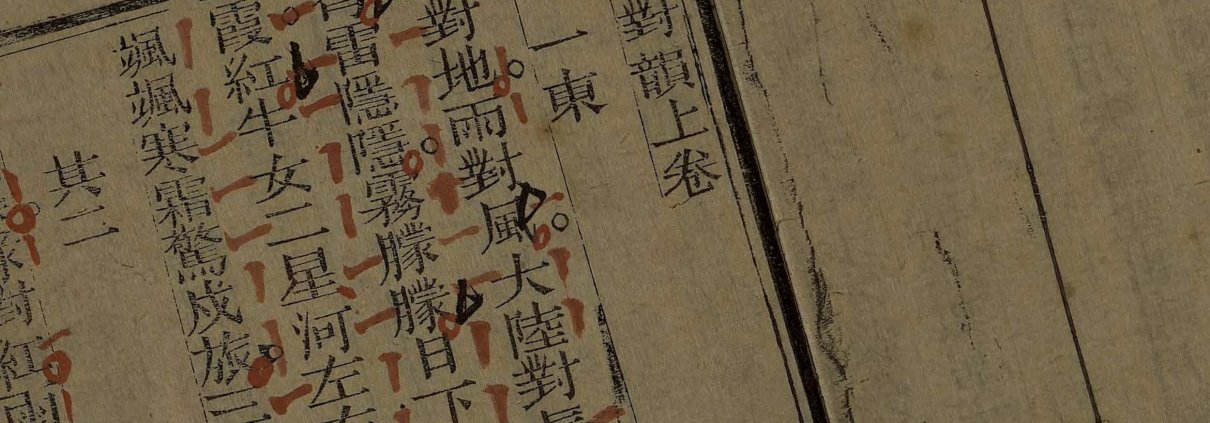 對韻上卷
一東
對地。雨對風。大陸對
雷隱隱。霧朦朦日下
霞紅牛女二星河左
颯颯寒霜驚戍旅。三
其二
對紅